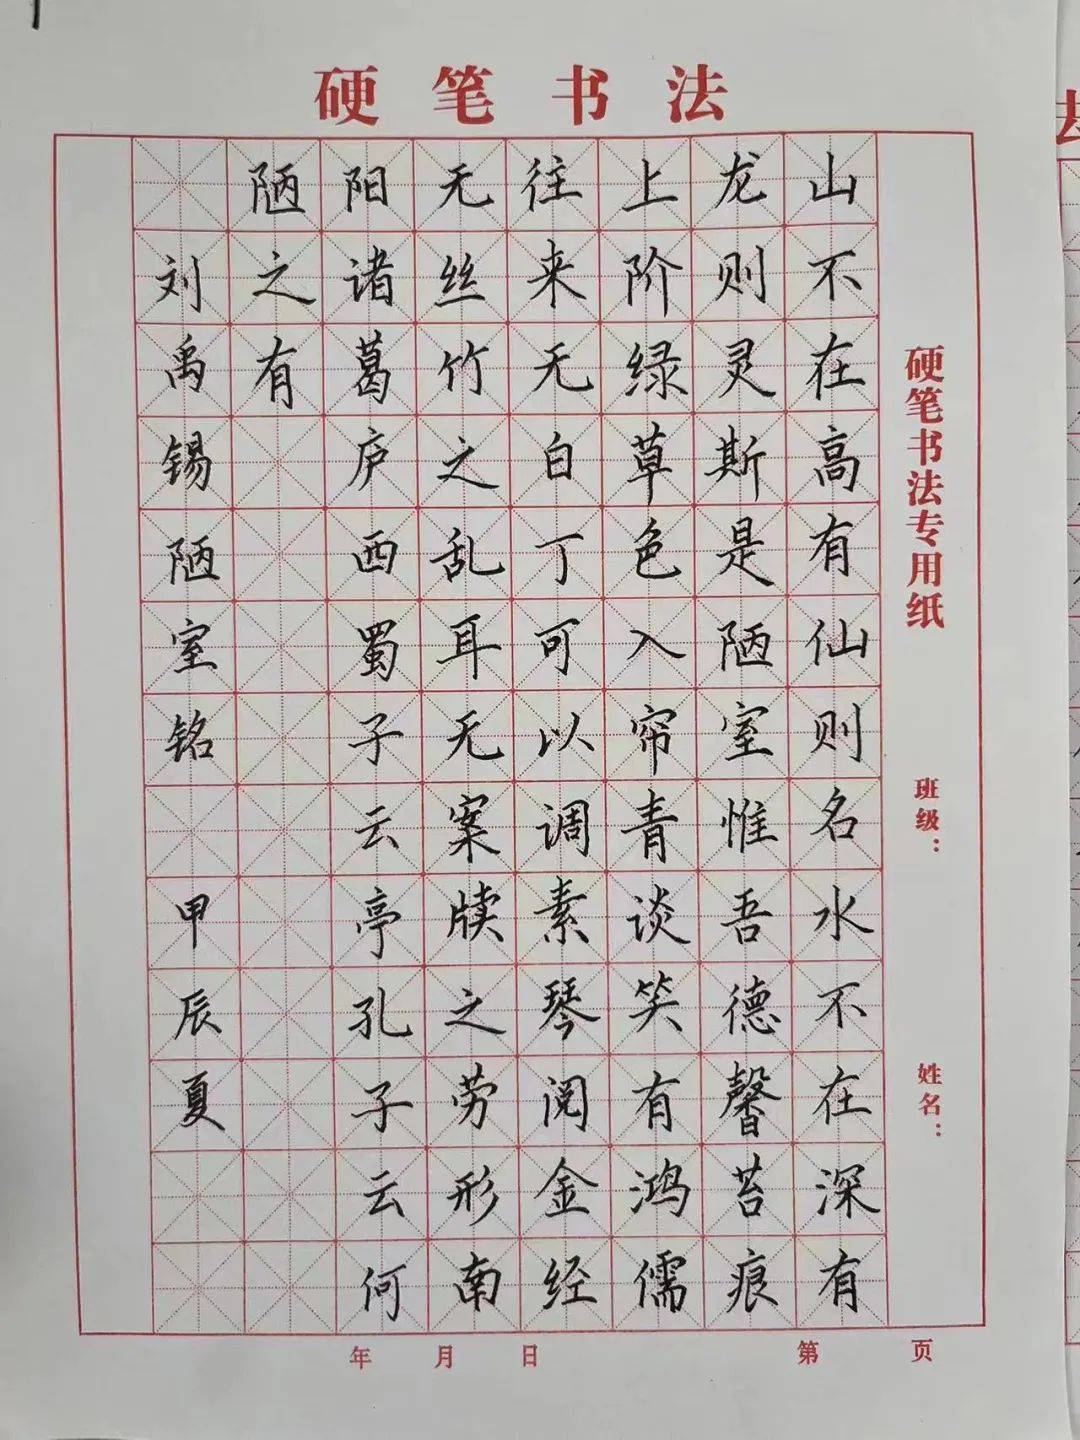 硬笔书法
山不在高有仙则名水不在深有
龙则灵斯是陋室惟吾德馨苔痕
上阶绿草色入帘青谈笑有鸿儒
往来无白丁可以调素琴阅金经
无丝竹之乱耳无案牍之劳形南
阳诸葛庐西蜀子云亭孔子云何
陋之有
刘禹锡陋室铭 甲辰夏
硬笔书法专用纸
班级：
姓名：
年 月 日
第 页
法